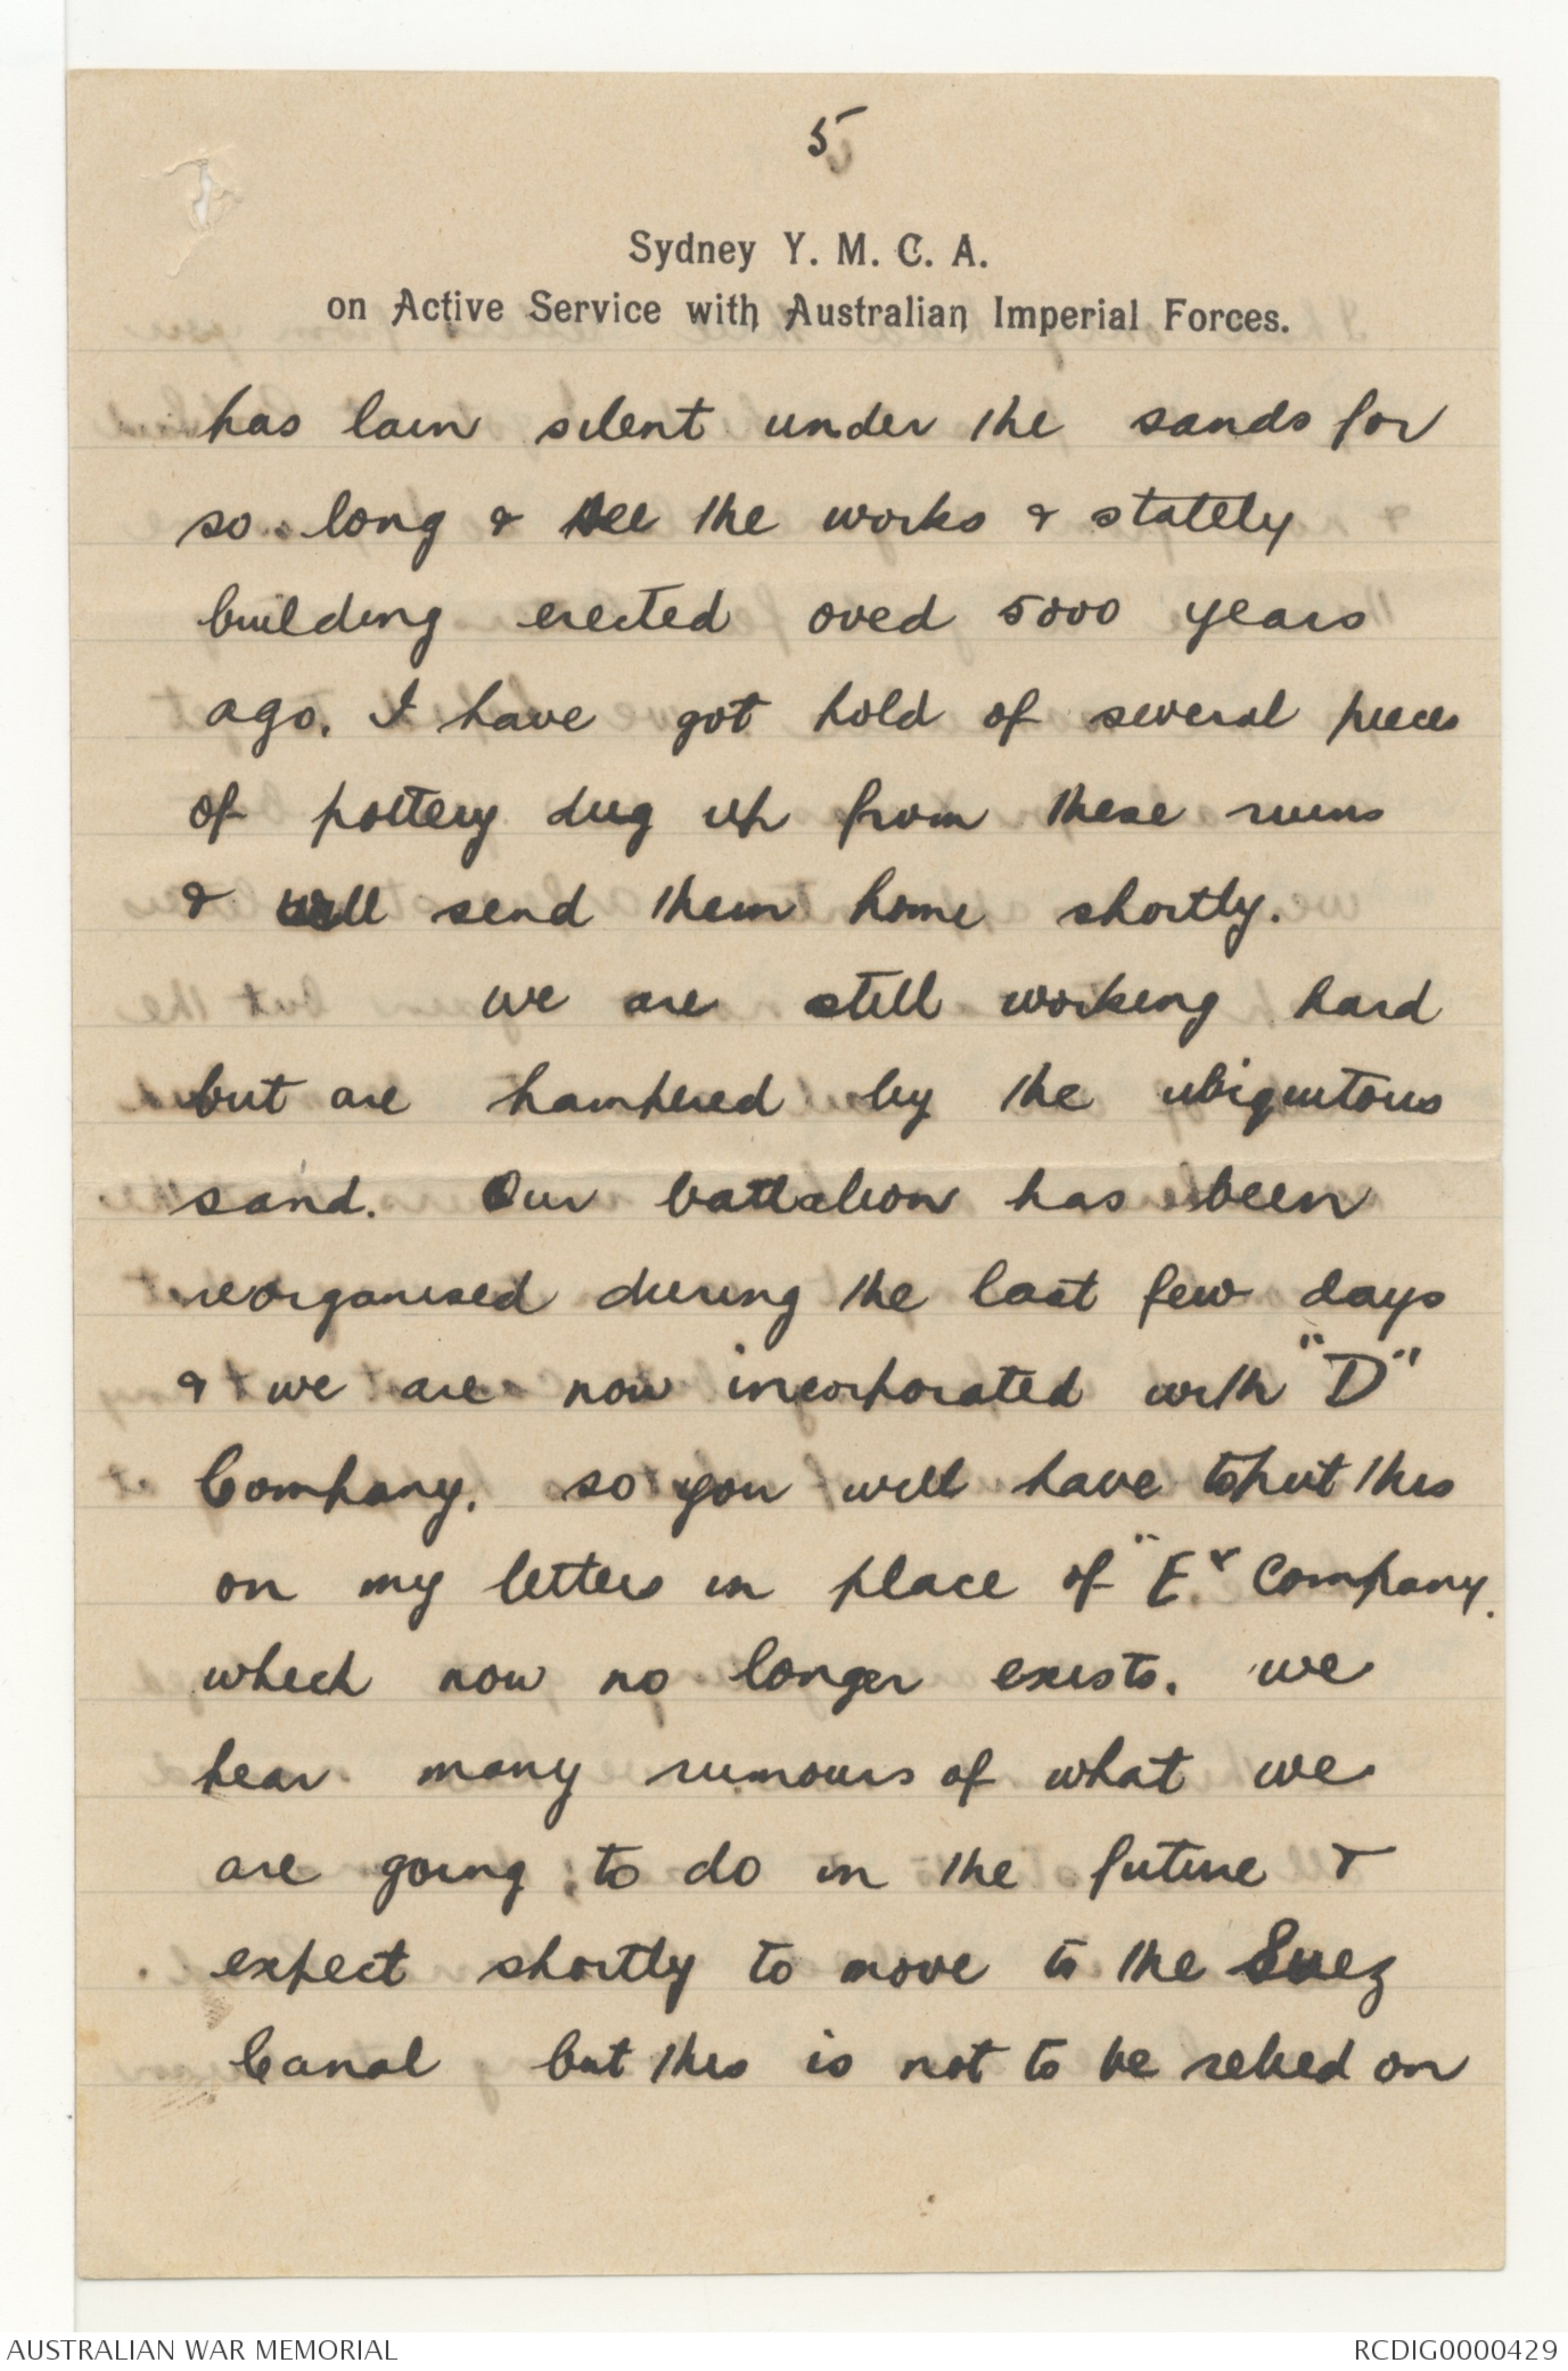 5
Sydney Y. M. C. A.
on Active Service with Australian Imperial Forces.
has lain silent under the sands for
so long & see the works & stately
building erected oved 5000 years
ago. I have got hold of several pieces
of pottery dug up from these ruins
& will send them home shortly.
we are still working hard
but are hampered by the ubiquitous
sand. Our battalion has been
reorganised during the last few days
& we are now incorporated with "D"
Company. so you will have to put this
on my letters in place of "E" Company.
which now no longer exists. we
hear many rumours of what we
are going to do in the future &
expect shortly to move to the Suez
Canal but this is not to be relied on
AUSTRALIAN WAR MEMORIAL
RCDIG0000429